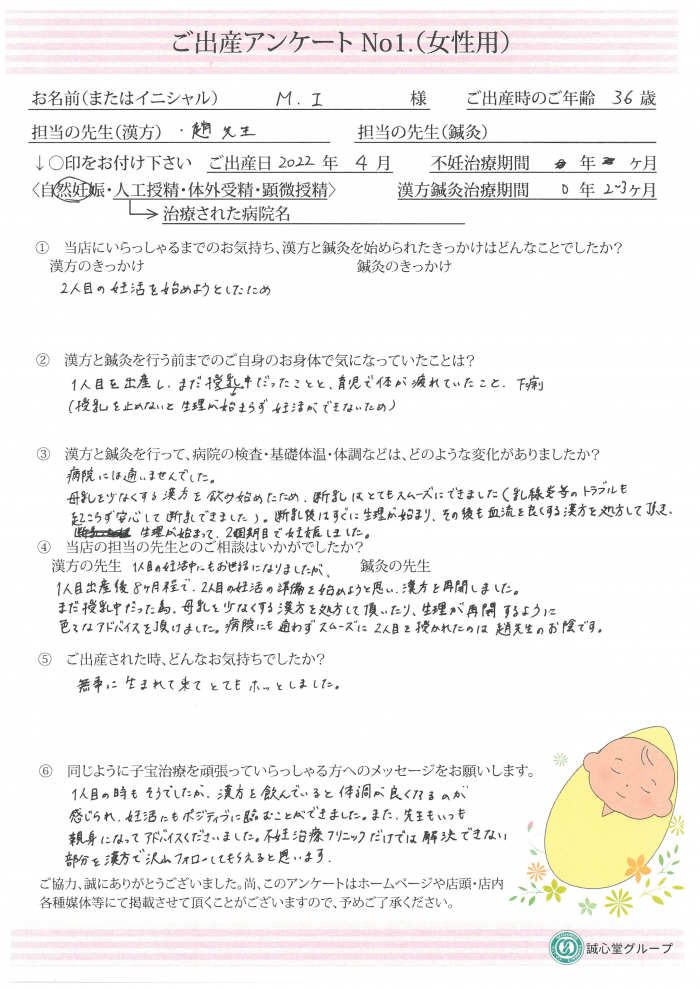 ご出産アンケート No1.(女性用)
お名前(またはイニシャル) M. I 様 ご出産時のご年齢 36 歳
担当の先生(漢方) ・趙先生 担当の先生(鍼灸)
↓○印をお付け下さい ご出産日 2022 年 4 月 不妊治療期間 年 ヶ月
〈自然妊娠・人工授精・体外受精・顕微授精〉 漢方鍼灸治療期間 0 年 2~3ヶ月
治療された病院名
① 当店にいらっしゃるまでのお気持ち、漢方と鍼灸を始められたきっかけはどんなことでしたか?
漢方のきっかけ 鍼灸のきっかけ
2人目の妊活を始めようとしたため
② 漢方と鍼灸を行う前までのご自身のお身体で気になっていたことは?
1人目を出産し、まだ授乳中だったことと、育児で体が疲れていたこと、下痢
(授乳を止めないと生理が始まらず妊活ができないため)
③ 漢方と鍼灸を行って、病院の検査・基礎体温・体調などは、どのような変化がありましたか?
病院には通いませんでした。
母乳を少なくする漢方を飲み始めたため、断乳はとてもスムーズにできました(乳腺炎等のトラブルも
起こらず安心して断乳できました)。断乳後はすぐに生理が始まり、その後も血流を良くする漢方を処方して頂き、
生理が始まって、2個期目で妊娠しました。
④ 当店の担当の先生とのご相談はいかがでしたか?
漢方の先生 1人目の妊活中にもお世話になりましたが、 鍼灸の先生
1人目出産後8ヶ月程で、2人目の妊活の準備を始めようと思い、漢方を再開しました。
まだ授乳中だった為、母乳を少なくする漢方を処方して頂いたり、生理が再開するように
色々なアドバイスを頂けました。病院にも通わずスムーズに2人目を授かれたのは趙先生のお陰です。
⑤ ご出産された時、どんなお気持ちでしたか?
無事に生まれて来てとてもホッとしました。
⑥ 同じように子宝治療を頑張っていらっしゃる方へのメッセージをお願いします。
1人目の時もそうでしたが、漢方を飲んでいると体調が良くなるのが
感じられ、妊活にもポジティブに臨むことができました。また、先生もいつも
親身になってアドバイスくださいました。不妊治療クリニックだけでは解決できない
部分を漢方で沢山フォローしてもらえると思います。
ご協力、誠にありがとうございました。尚、このアンケートはホームページや店頭・店内
各種媒体等にて掲載させて頂くことがございますので、予めご了承ください。
誠心堂グループ